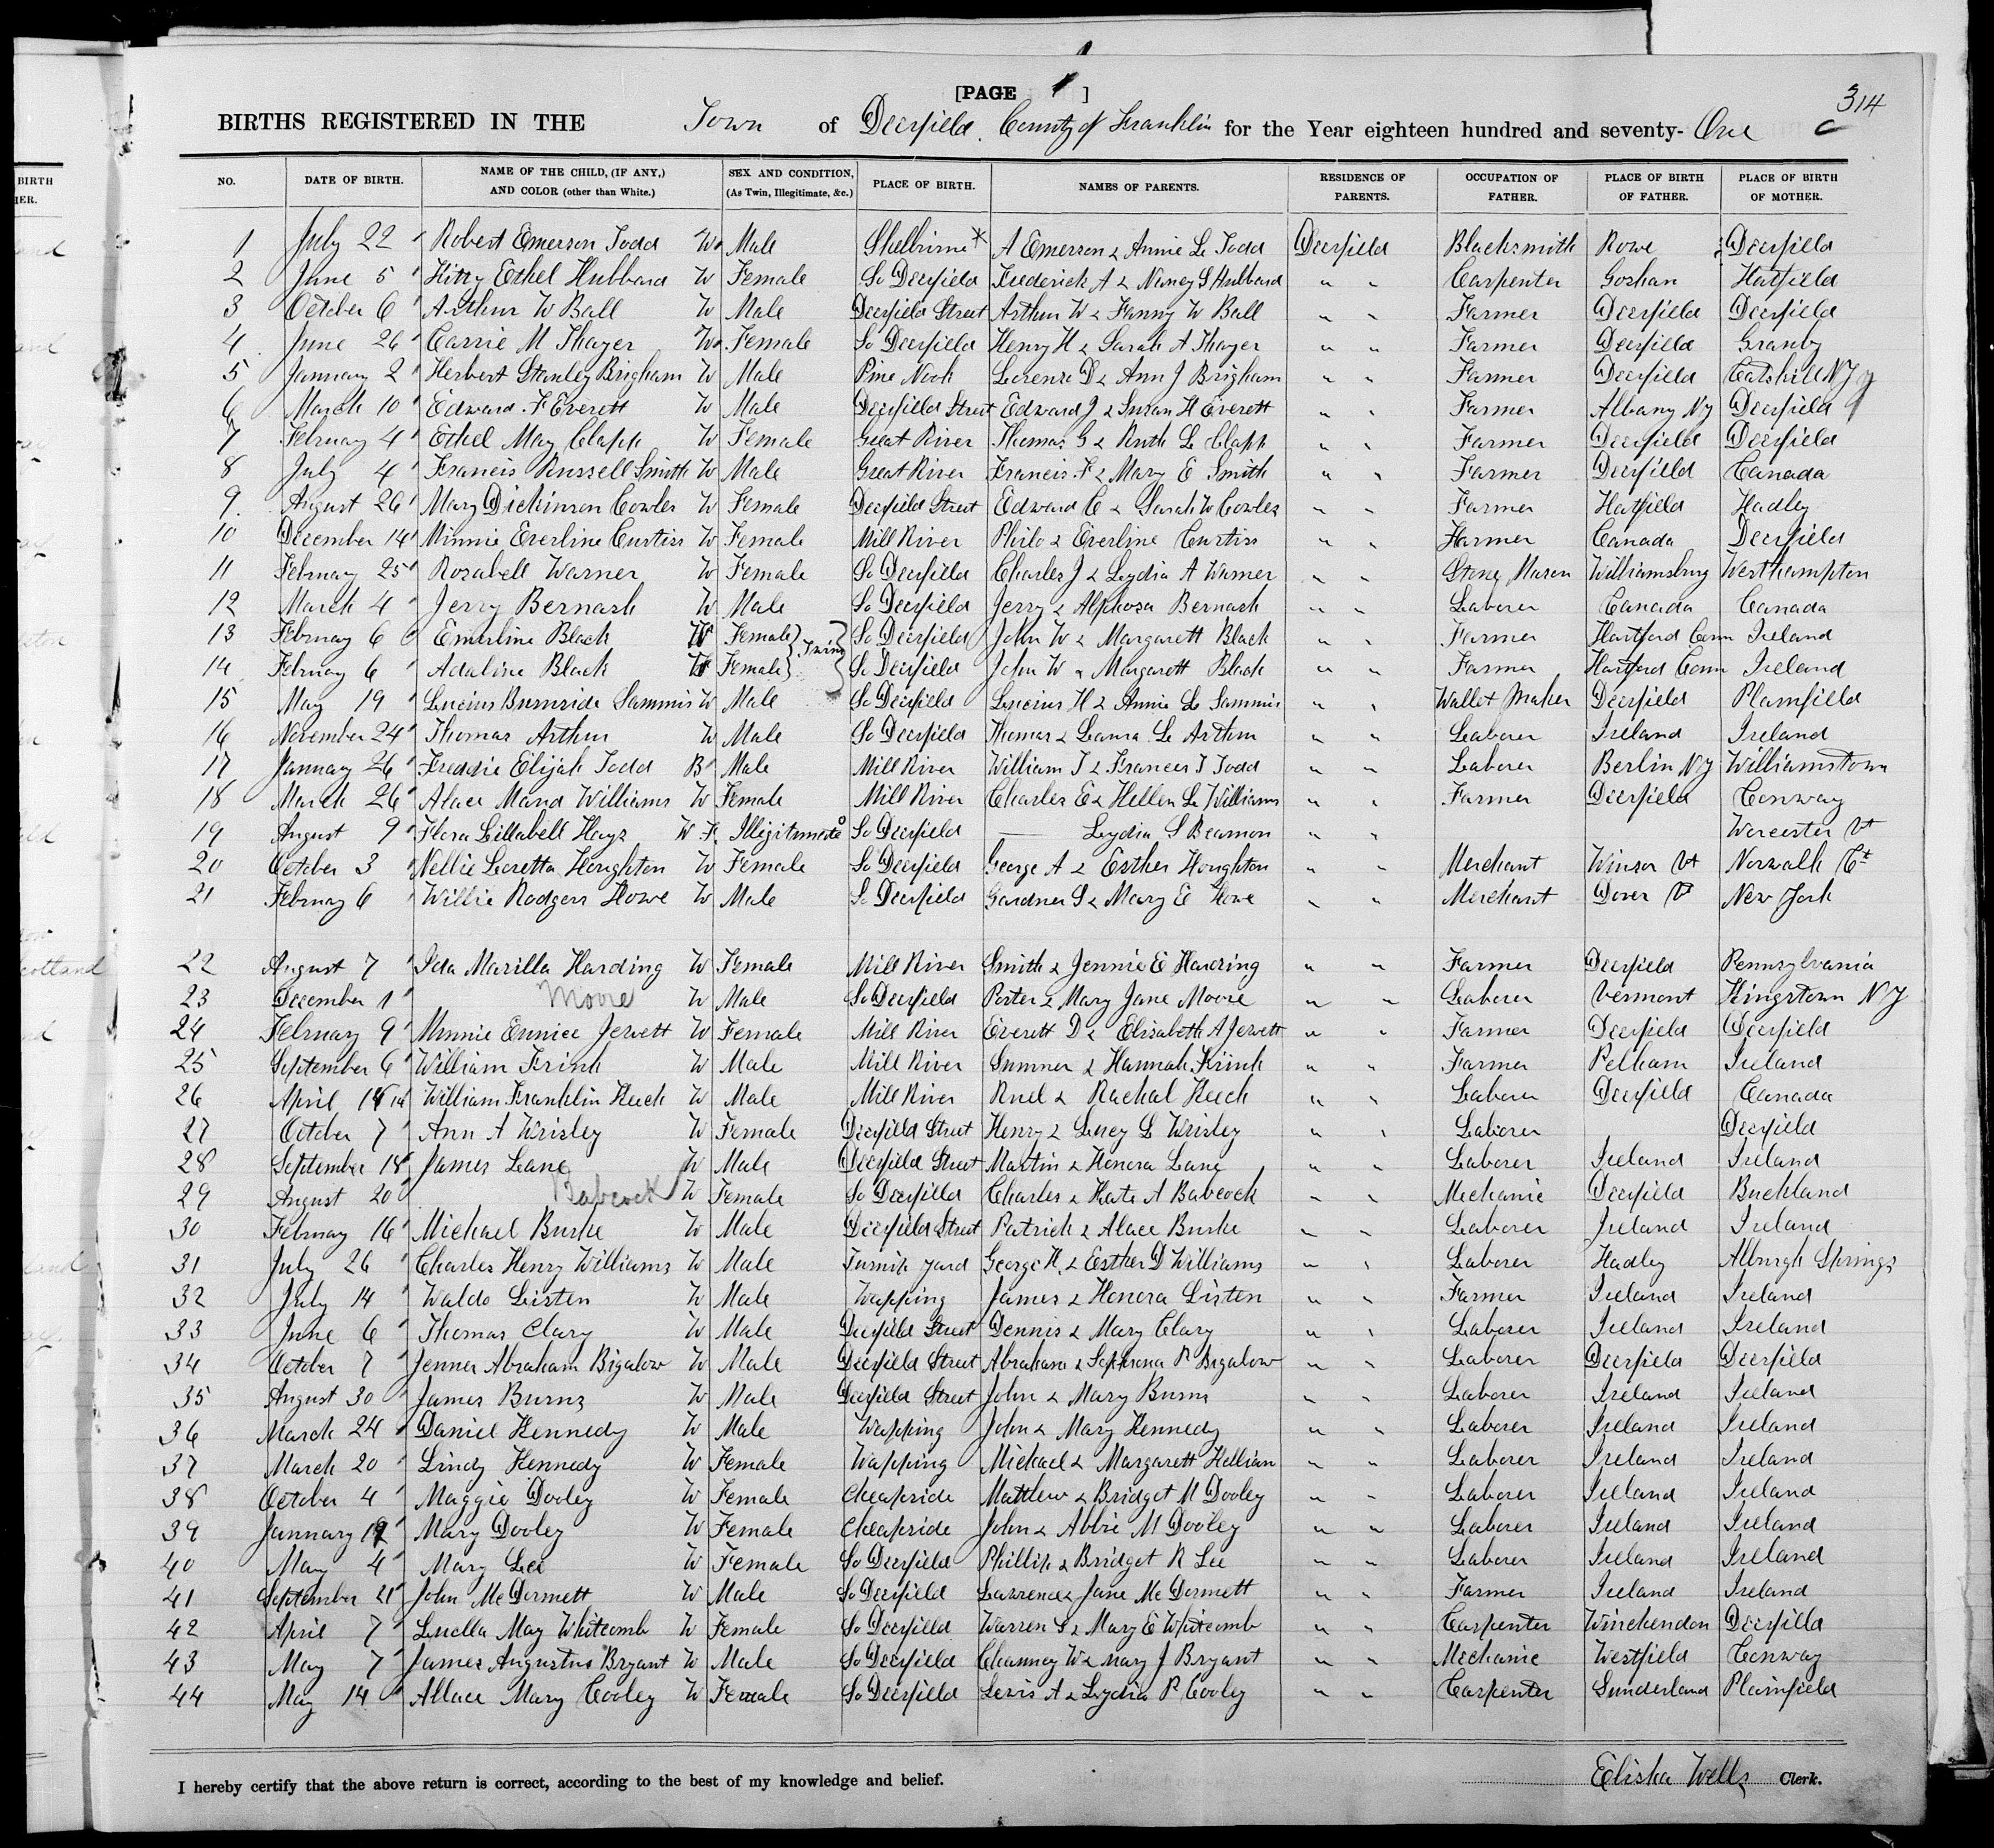 314
[PAGE 1 ]
BIRTHS REGISTERED IN THE Town of Deerfield. County of Franklin for the Year eighteen hundred and seventy- One
NO. DATE OF BIRTH. NAME OF THE CHILD, (IF ANY,) AND COLOR (other than White.) SEX AND CONDITION, (As Twin, Illegitimate, &c.) PLACE OF BIRTH. NAMES OF PARENTS. RESIDENCE OF PARENTS. OCCUPATION OF FATHER. PLACE OF BIRTH OF FATHER. PLACE OF BIRTH OF MOTHER.
1 July 22 Robert Emerson Todd W Male Shelburne* A Emerson & Annie L Todd Deerfield Blacksmith Rowe Deerfield
2 June 5 Kitty Ethel Hubbard W Female So Deerfield Frederick A & Nancy S Hubbard " " Carpenter Goshan Hatfield
3 October 6 Arthur W Ball W Male Deerfield Street Arthur W & Fanny W Ball " " Farmer Deerfield Deerfield
4 June 26 Carrie M Thayer W Female So Deerfield Henry H & Sarah A Thayer " " Farmer Deerfield Granby
5 January 2 Herbert Stanley Brigham W Male Pine Nook Lorenzo D & Ann J Brigham " " Farmer Deerfield Catskill NY
6 March 10 Edward F Everett W Male Deerfield Street Edward J & Susan H Everett " " Farmer Albany NY Deerfield
7 February 4 Ethel May Clapp W Female Great River Thomas G & Ruth L Clapp " " Farmer Deerfield Deerfield
8 July 4 Francis Russell Smith W Male Great River Francis F & Mary E Smith " " Farmer Deerfield Canada
9 August 26 Mary Dickinson Cowles W Female Deerfield Street Edward C & Sarah W Cowles " " Farmer Hatfield Hadley
10 December 14 Minnie Everline Curtiss W Female Mill River Philo & Everline Curtiss " " Farmer Canada Deerfield
11 February 25 Rozabell Warner W Female So Deerfield Charles J & Lydia A Warner " " Stone Mason Williamsburg Westhampton
12 March 4 Jerry Bernash W Male So Deerfield Jerry & Alphoza Bernash " " Laborer Canada Canada
13 February 6 Emerline Black W Female } Twins So Deerfield John W & Margarett Black " " Farmer Hartford Conn Ireland
14 February 6 Adaline Black W Female } So Deerfield John W & Margarett Black " " Farmer Hartford Conn Ireland
15 May 19 Lucius Burnside Sammis W Male So Deerfield Lucius H & Annie L Sammis " " Wallet Maker Deerfield Plainfield
16 November 24 Thomas Arthur W Male So Deerfield Thomas & Laura L Arthur " " Laborer Ireland Ireland
17 January 26 Freddie Elijah Todd B Male Mill River William T & Frances T Todd " " Laborer Berlin NY Williamstown
18 March 26 Alace Maud Williams W Female Mill River Charles E & Hellen L Williams " " Farmer Deerfield Conway
19 August 9 Flora Lillabell Hayz W F. Illigitimate So Deerfield — Lydia S Beamon " " Worcester Vt
20 October 3 Nellie Loretta Houghton W Female So Deerfield George A & Esther Houghton " " Merchant Winsor Vt Norwalk Ct
21 February 6 Willie Rodgers Howe W Male So Deerfield Gardner S & Mary E Howe " " Merchant Dover Vt New York
22 August 7 Ida Marilla Harding W Female Mill River Smith & Jennie E Harding " " Farmer Deerfield Pennsylvania
23 December 1 Moore W Male So Deerfield Porter & Mary Jane Moore " " Laborer Vermont Kingstown NY
24 February 9 Minnie Eunice Jewett W Female Mill River Everett D & Elizabeth A Jewett " " Farmer Deerfield Deerfield
25 September 6 William Frink W Male Mill River Sumner & Hannah Frink " " Farmer Pelham Ireland
26 April 14 William Franklin Keech W Male Mill River Ruel & Rachal Keech " " Laborer Deerfield Canada
27 October 7 Ann A Wrisley W Female Deerfield Street Henry & Lucy L Wrisley " " Laborer Deerfield
28 September 18 James Lane W Male Deerfield Street Martin & Honora Lane " " Laborer Ireland Ireland
29 August 20 Babcock W Female So Deerfield Charles & Kate A Babcock " " Mechanic Deerfield Buckland
30 February 16 Michael Burke W Male Deerfield Street Patrick & Alace Burke " " Laborer Ireland Ireland
31 July 26 Charles Henry Williams W Male Turnip yard George H. & Esther D Williams " " Laborer Hadley Alburgh Springs
32 July 14 Waldo Listen W Male Wapping James & Honora Listen " " Farmer Ireland Ireland
33 June 6 Thomas Clary W Male Deerfield Street Dennis & Mary Clary " " Laborer Ireland Ireland
34 October 7 Jenner Abraham Bigalow W Male Deerfield Street Abraham & Sophrona P Bigalow " " Laborer Deerfield Deerfield
35 August 30 James Burns W Male Deerfield Street John & Mary Burns " " Laborer Ireland Ireland
36 March 24 Daniel Kennedy W Male Wapping John & Mary Kennedy " " Laborer Ireland Ireland
37 March 20 Lindy Kennedy W Female Wapping Michael & Margarett Hellian " " Laborer Ireland Ireland
38 October 4 Maggie Dooley W Female Cheapside Matthew & Bridget M Dooley " " Laborer Ireland Ireland
39 January 19 Mary Dooley W Female Cheapside John & Abbie M Dooley " " Laborer Ireland Ireland
40 May 4 Mary Lee W Female So Deerfield Phillip & Bridget R Lee " " Laborer Ireland Ireland
41 September 21 John McDermett W Male So Deerfield Lawrence & Jane McDermett " " Farmer Ireland Ireland
42 April 7 Luella May Whitcomb W Female So Deerfield Warren S & Mary E Whitcomb " " Carpenter Winchendon Deerfield
43 May 7 James Augustus Bryant W Male So Deerfield Chauncy W & Mary J Bryant " " Mechanic Westfield Conway
44 May 14 Allace Mary Cooley W Female So Deerfield Lewis A & Lydia P Cooley " " Carpenter Sunderland Plainfield
I hereby certify that the above return is correct, according to the best of my knowledge and belief. Elisha Wells Clerk.